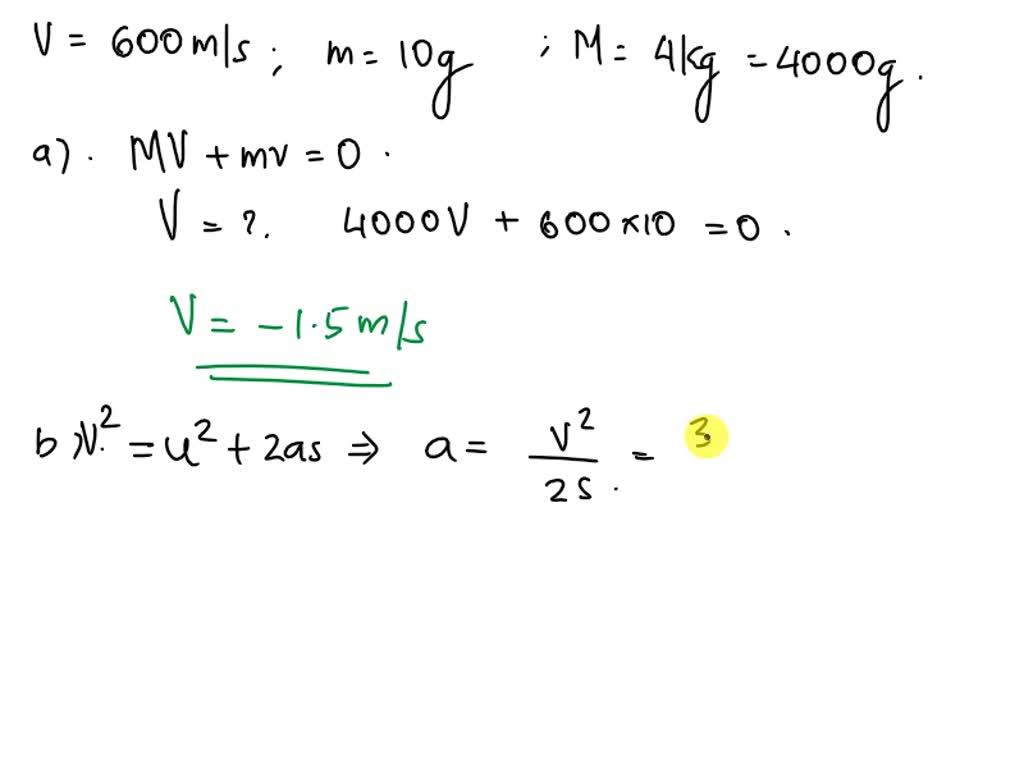 V = 600 m/s ; m = 10g ; M = 4kg = 4000g .
a) . MV + mv = 0 .
V = ? . 4000V + 600 × 10 = 0 .
V = - 1.5 m/s
b) V² = u² + 2as ⇒ a = V² / 2S . = 3